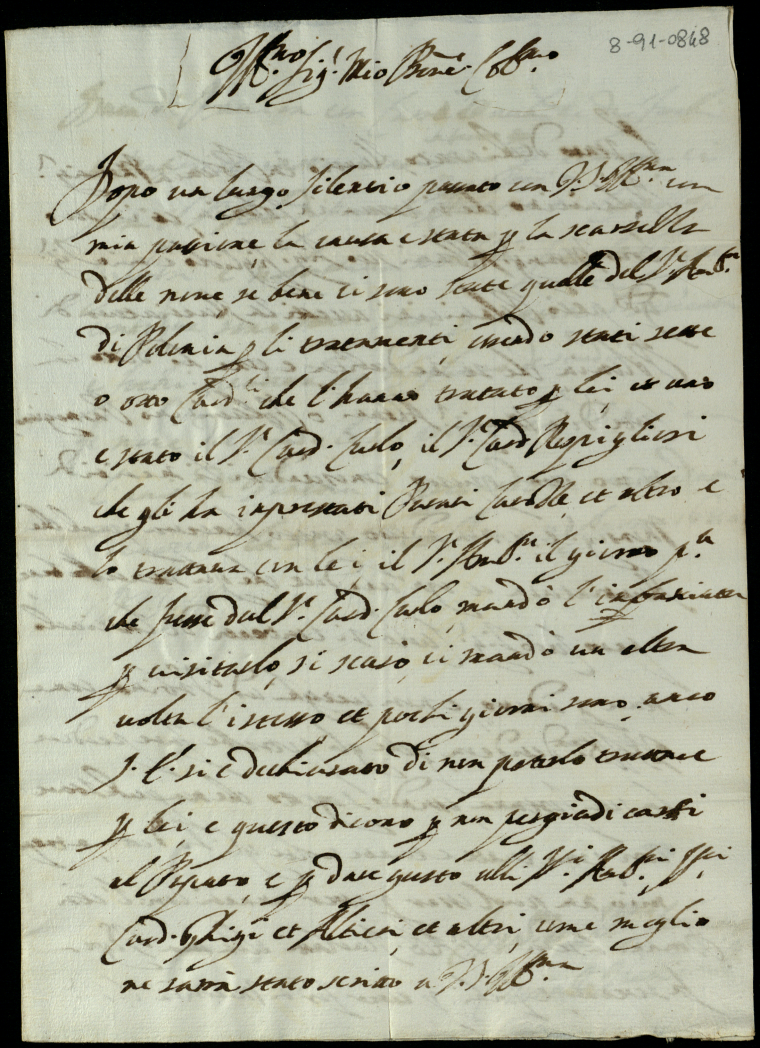 8-91-0848
Ill.mo Sig.r Mio Sig.r Col.mo
Dopo un lungo silentio passato con V.S. Ill.ma con
mia passione la causa è stata p la scarsella
delle nove, se bene ci sono state quelle del S.r Amb.re
di Polonia p li trattamenti, essendo stati sette
o otto Card.li che l'hanno trattato p lei, et uno
è stato il S.r Card. Carlo, il S.r Card. Rospigliosi
che gli ha imprestati et altro e
lo trattava con lei, il S.r Amb.re il giorno p.a
che fusse dal S.r Card. Carlo, mandò l'imbasciata
p visitarlo, si scusò, ci mandò un altra
volta l'istesso et pochi giorni sono anco
S. E. si è dichiarato di non poterlo trattare
p lei, e questo dicono p non pregiudicarsi
al Papato, e p dare gusto alli S.ri Amb.ri
Card. Ghigi et Altieri, et altri, come meglio
ne sarà stato scritto a V.S. Ill.ma